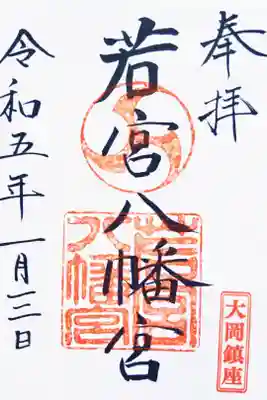 奉拝
若宮八幡宮
若宮
八幡宮
大岡鎮座
令和五年一月三日